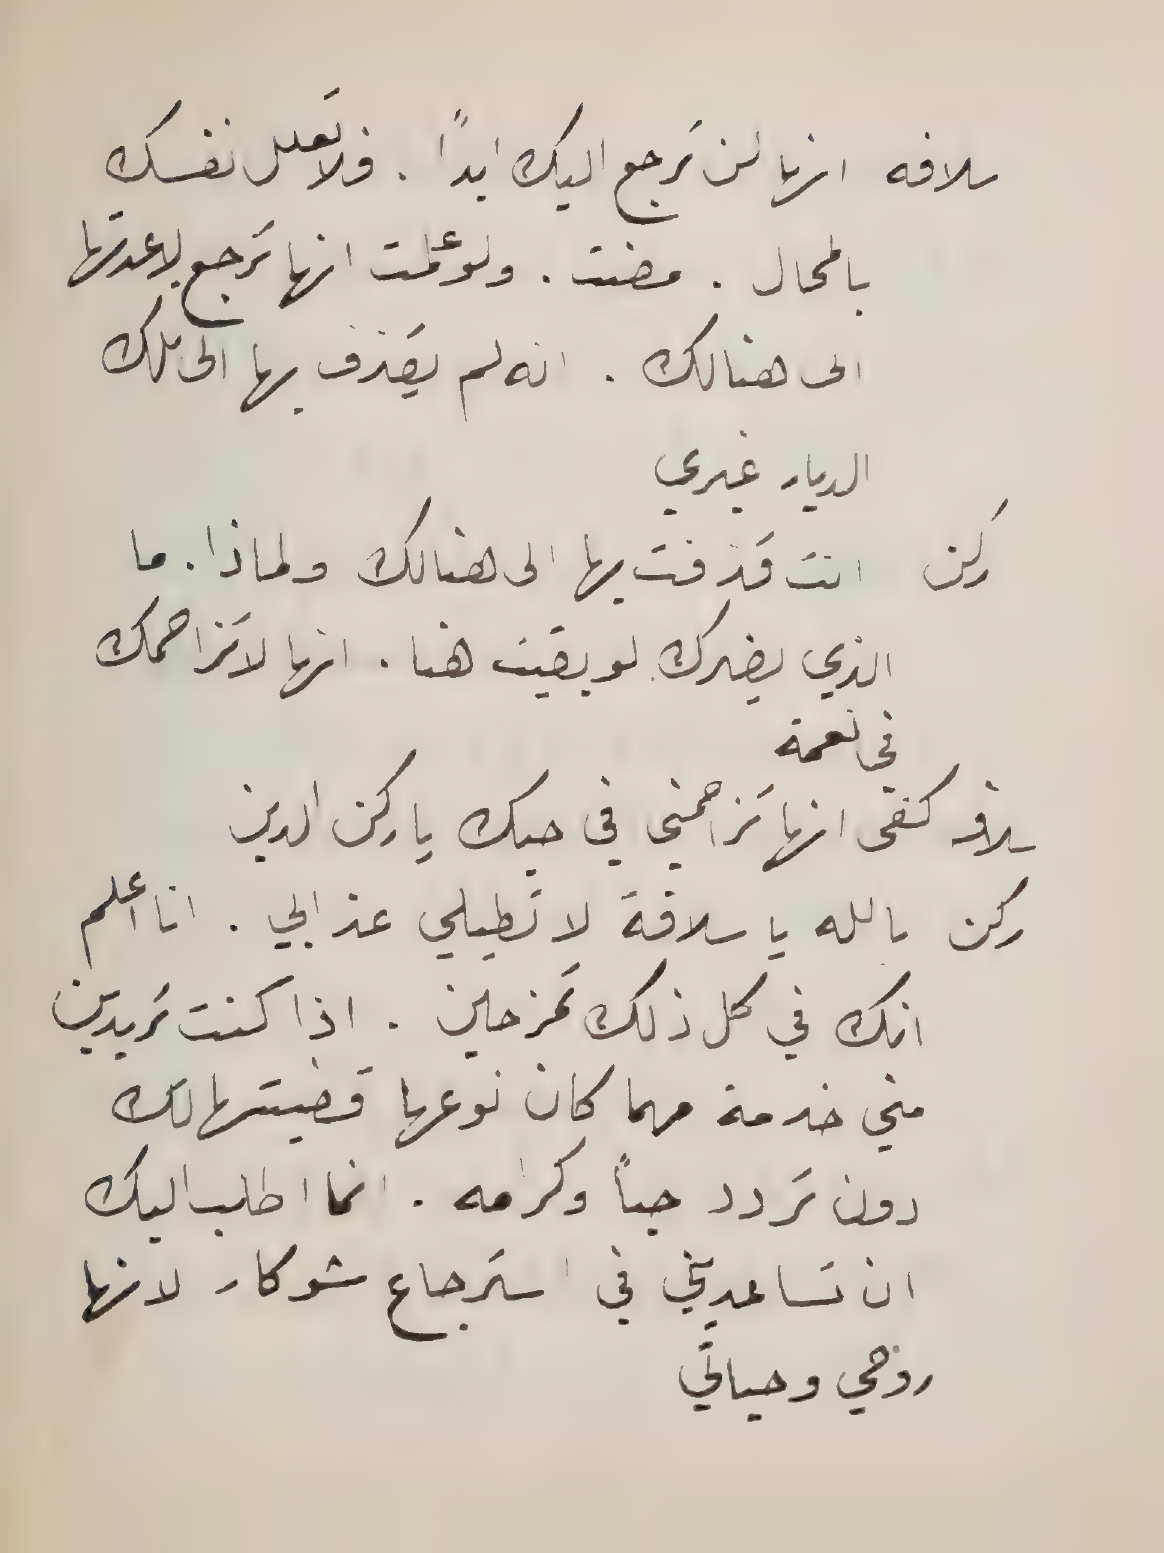 سلافه انها لن ترجع اليك ابداً . فلا تعلل نفسك
بالمحال . مضت . ولو علمت انها ترجع لاعدتها
الى هنالك . انه لم يقذف بها الى تلك
الديار غيري
ركن انت قذفت بها الى هنالك ولماذا . ما
الذي يضرك لو بقيت هنا . انها لا تزاحمك
في نعمة
سلافه كفى انها تزاحمني في حبك يا ركن الدين
ركن بالله يا سلافة لا تطيلي عذابي . انا اعلم
انك في كل ذلك تمزحين . اذا كنت تريدين
مني خدمة مهما كان نوعها قضيتها لك
دون تردد حباً وكرامه . انما اطلب اليك
ان تساعديني في استرجاع شوكار لانها
روحي وحياتي